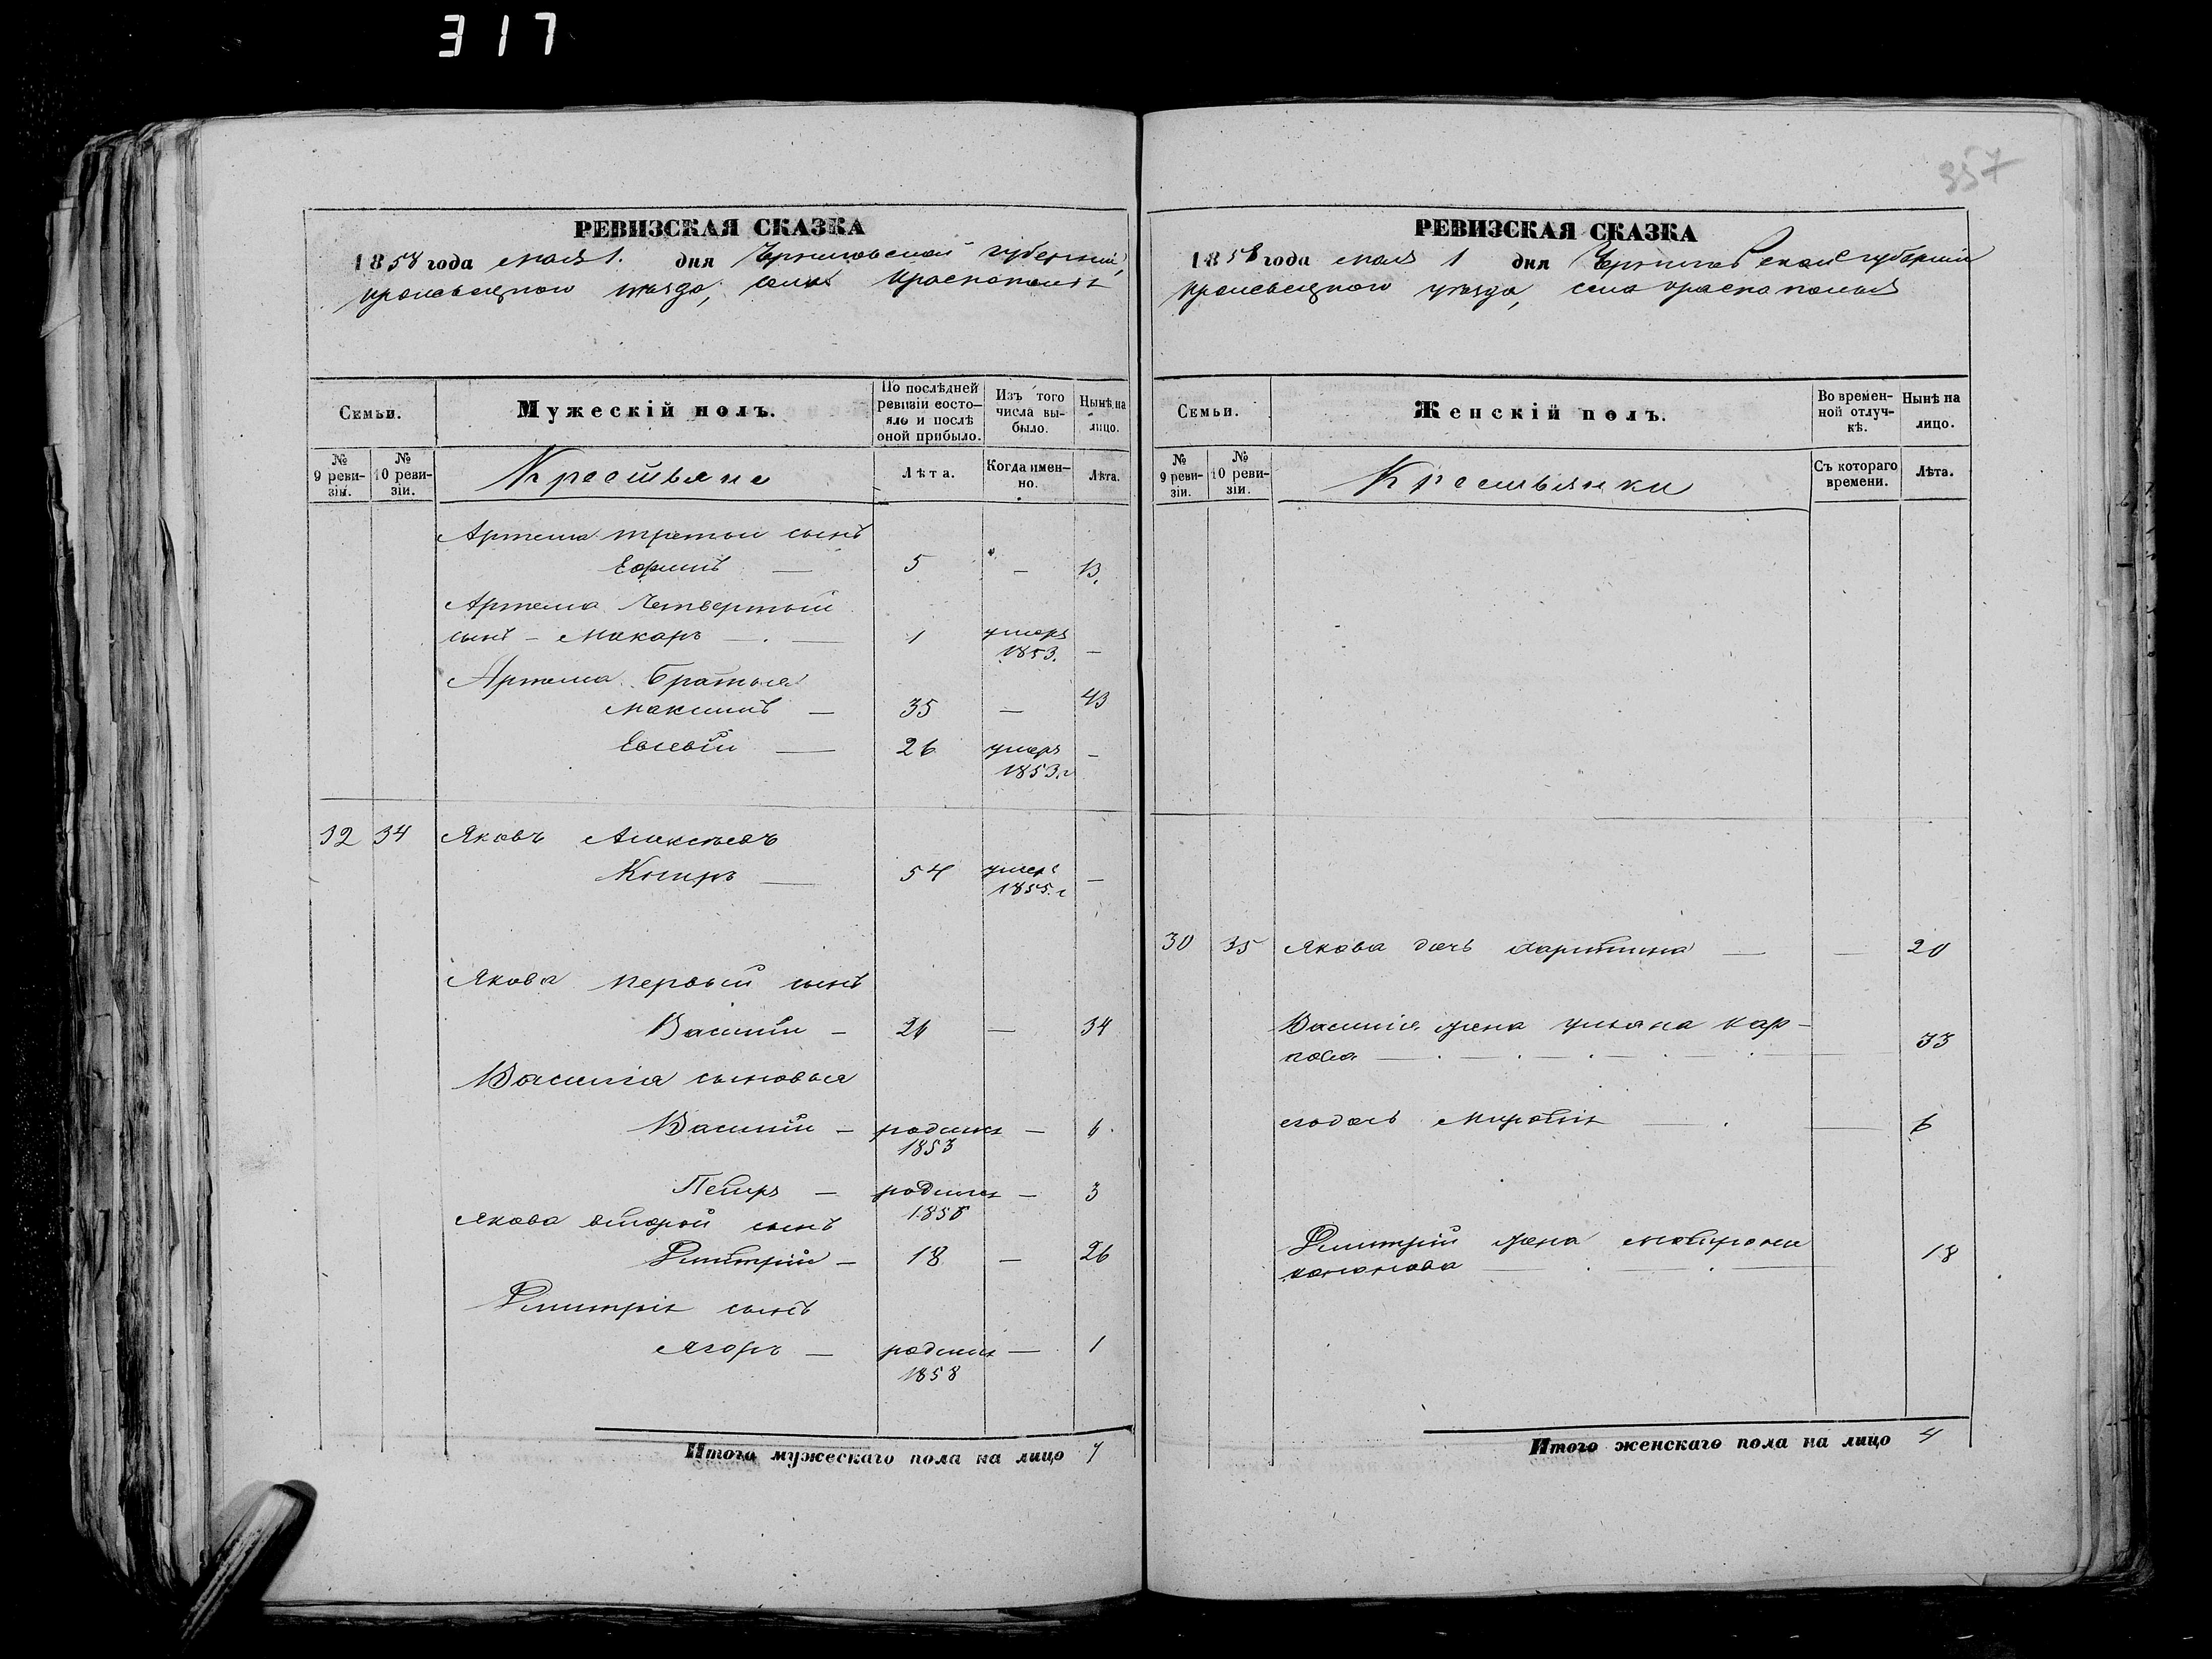 317
357
РЕВИЗСКАЯ СКАЗКА
1858 года мая 1. дня Черниговской губерніи,
уезда, села Краснополья
Семьи.
Мужескій полъ.
По послѣдней ревизіи состояло и послѣ оной прибыло.
Изъ того числа выбыло.
Нынѣ на лицо.
№ 9 ревизіи.
№ 10 ревизіи.
Крестьяне
Лѣта.
Когда именно.
Лѣта.
Артема третий сынъ
Ефимъ — 5 — 13.
Артема Четвертый
сынъ — Макаръ — 1 умеръ 1853. —
Артема братья
Максимъ — 35 — 43
26 умеръ 1853.г —
32 34 Яковъ Алексѣевъ
54 умеръ 1855.г —
Якова первый сынъ
Василій — 26 — 34
Василія сыновья
Василій — родился 1853 — 6.
Петръ — родился — 3
Якова второй сынъ
Дмитрій — 18 — 26
Дмитрія сынъ
Ягоръ — родился 1858 — 1
Итого мужескаго пола на лицо 7
РЕВИЗСКАЯ СКАЗКА
1858 года мая 1 дня Черниговской губерніи
уезда, села Краснополья
Семьи.
Женскій полъ.
Во временной отлучкѣ.
Нынѣ на лицо.
№ 9 ревизіи.
№ 10 ревизіи.
Крестьянки
Съ котораго времени.
Лѣта.
30 35 Якова дочь — — 20
Василія жена Ульяна Кар-
пова — — 33
его дочь — — 6
Дмитрій жена
18
Итого женскаго пола на лицо 4